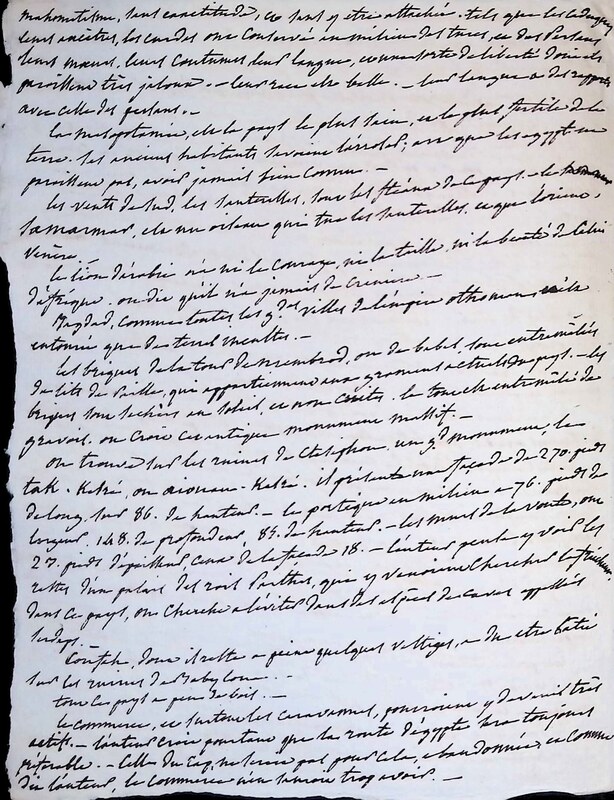 mahométisme, sans exactitude, et sans y etre attachés. tels que
leurs ancêtres, les curdes ont conservé au milieu des turcs, et des Persans
leurs mœurs, leurs coutumes, leur langue, et une sorte de liberté dont ils
paroissent très jaloux. - leur race est belle. - leur langue a des rapports
avec celle des persans. -
la mesopotamie, est le pays le plus sain, et le plus fertile de la
terre. ses anciens habitants avoient que les egyptiens
paroissent pas, avoir jamais bien connu. -
les vents de sud, les sauterelles, sont les fléaux de ce pays. - le
samarmar, est un oiseau qui tue les sauterelles, et que l'orient,
vénère.
le lion d'arabie n'a ni le courage, ni la taille, ni la beauté de celui
d'afrique. on dit qu'il n'a jamais de crinière. -
Bagdad, comme toutes les gdes villes de l'empire othoman n'est
entourée que de terres incultes. -
les briques de la tour de Nembrod, ou de babel, sont entremêlées
de lits de paille, qui appartiennent aux graminées actuels du pays. - les
briques sont sechées au soleil, et non cuites. le tout est entremêlé de
gravois. on croit cet antique monument massif. -
on trouve sur les ruines de Ctésiphon un gd monument, le
tak - Kesré, ou aiouan - Kesré. il présente une façade de 270. pieds
de long, sur 86. de hauteur. - le portique au milieu a 76. pieds de
largeur, 148. de profondeur, 85. de hauteur. - les murs de la voute, ont
23. pieds d'épaisseur, ceux de la façade 18. - l'auteur pense y voir les
restes d'un palais des rois Parthes, qui y venoient chercher la fraicheur
dans ce pays, on cherche a l'éviter dans des especes de caves appellés
serdaps. -
Coufah, dont il reste a peine quelques vestiges, a du etre batie
sur les ruines de Babylone. -
tout ce pays a peu de bois. -
le commerce, et surtout les caravannes, pourroient y devenir très
actifs. - l'auteur croit pourtant que la route d'égypte sera toujours
préférable. - Celle du Cap, ne seroit pas pour cela, abandonnée, et comme
dit l'auteur, le commerce n'en sauroit trop avoir. -